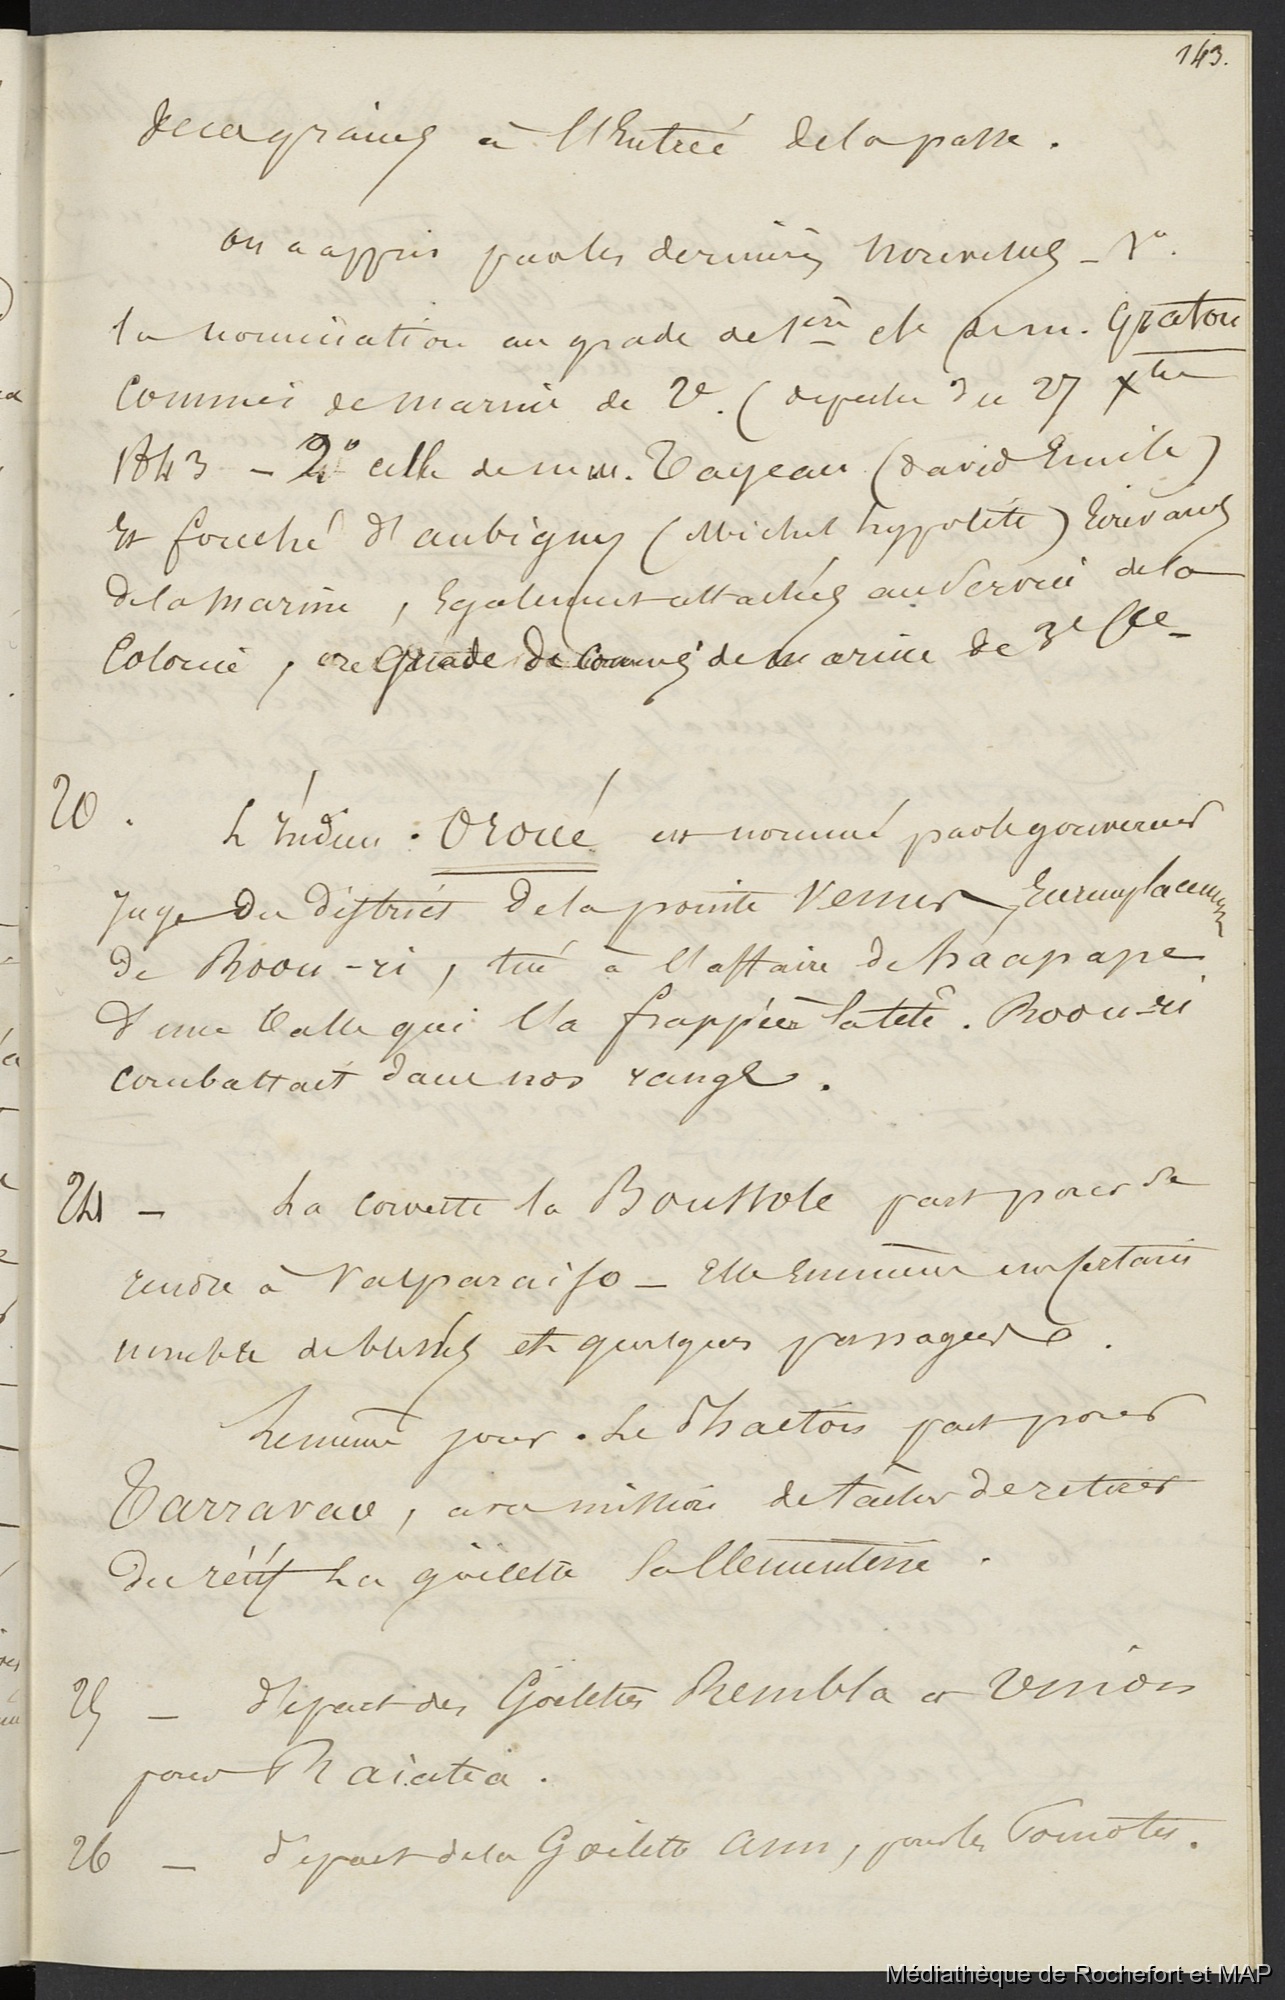 143.
de ces grains à l'Entreé de la passe.
on a appris par les dernières nouvelles - 1°.
la nomination au grade de 1ère cle de m. Graton
Commis de marine de 2e. (depeche du 27 xbre
1843 - 2° celle de mm. Tayeau (david Emile)
Et fouché d'aubigny (Michel hyppolite) Ecrivains
de la marine, Egalement attachés au Service de la
Colonie, au Grade de Commis de marine de 3e Cle-
20. L'indien. Oroué est nommé par le gouverneur
Juge du district de la pointe Venus En remplacement
de Roou-ri, tué à l'affaire de haapape
d'une balle qui l'a frappé à la tête. Roou-ri
combattait dans nos rangs.
24 - La corvette la Boussole part pour se
rendre à Valparaiso - Elle Emmène un certain
nombre de blessés et quelques passagers.
Le même jour. Le Phaéton part pour
Tarravao, a sa mission de tâcher de retirer
du récif La goëlette la Clémentine.
25 - départ des Goëlettes Rembla et Union
pour Raiatéa.
26 - départ de la Goëlette Ann, pour les Pomotes.
Médiathèque de Rochefort et MAP